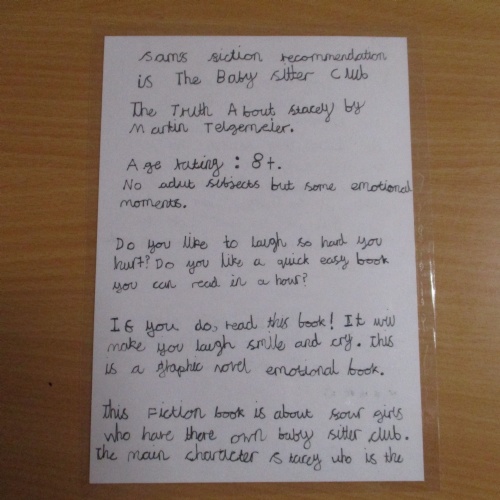 sams fiction recommendation
is The Baby sitter Club
The Truth About stacey by
Martin Telgemeier.
Age rating : 8+.
No adut subjects but some emotional
moments.
Do you like to laugh so hard you
hurt? Do you like a quick easy book
you can read in a hour?
If you do, read this book! It will
make you laugh smile and cry. This
is a graphic novel emotional book.
This Fiction book is about four girls
who have there own baby sitter club.
The main character is stacey who is the